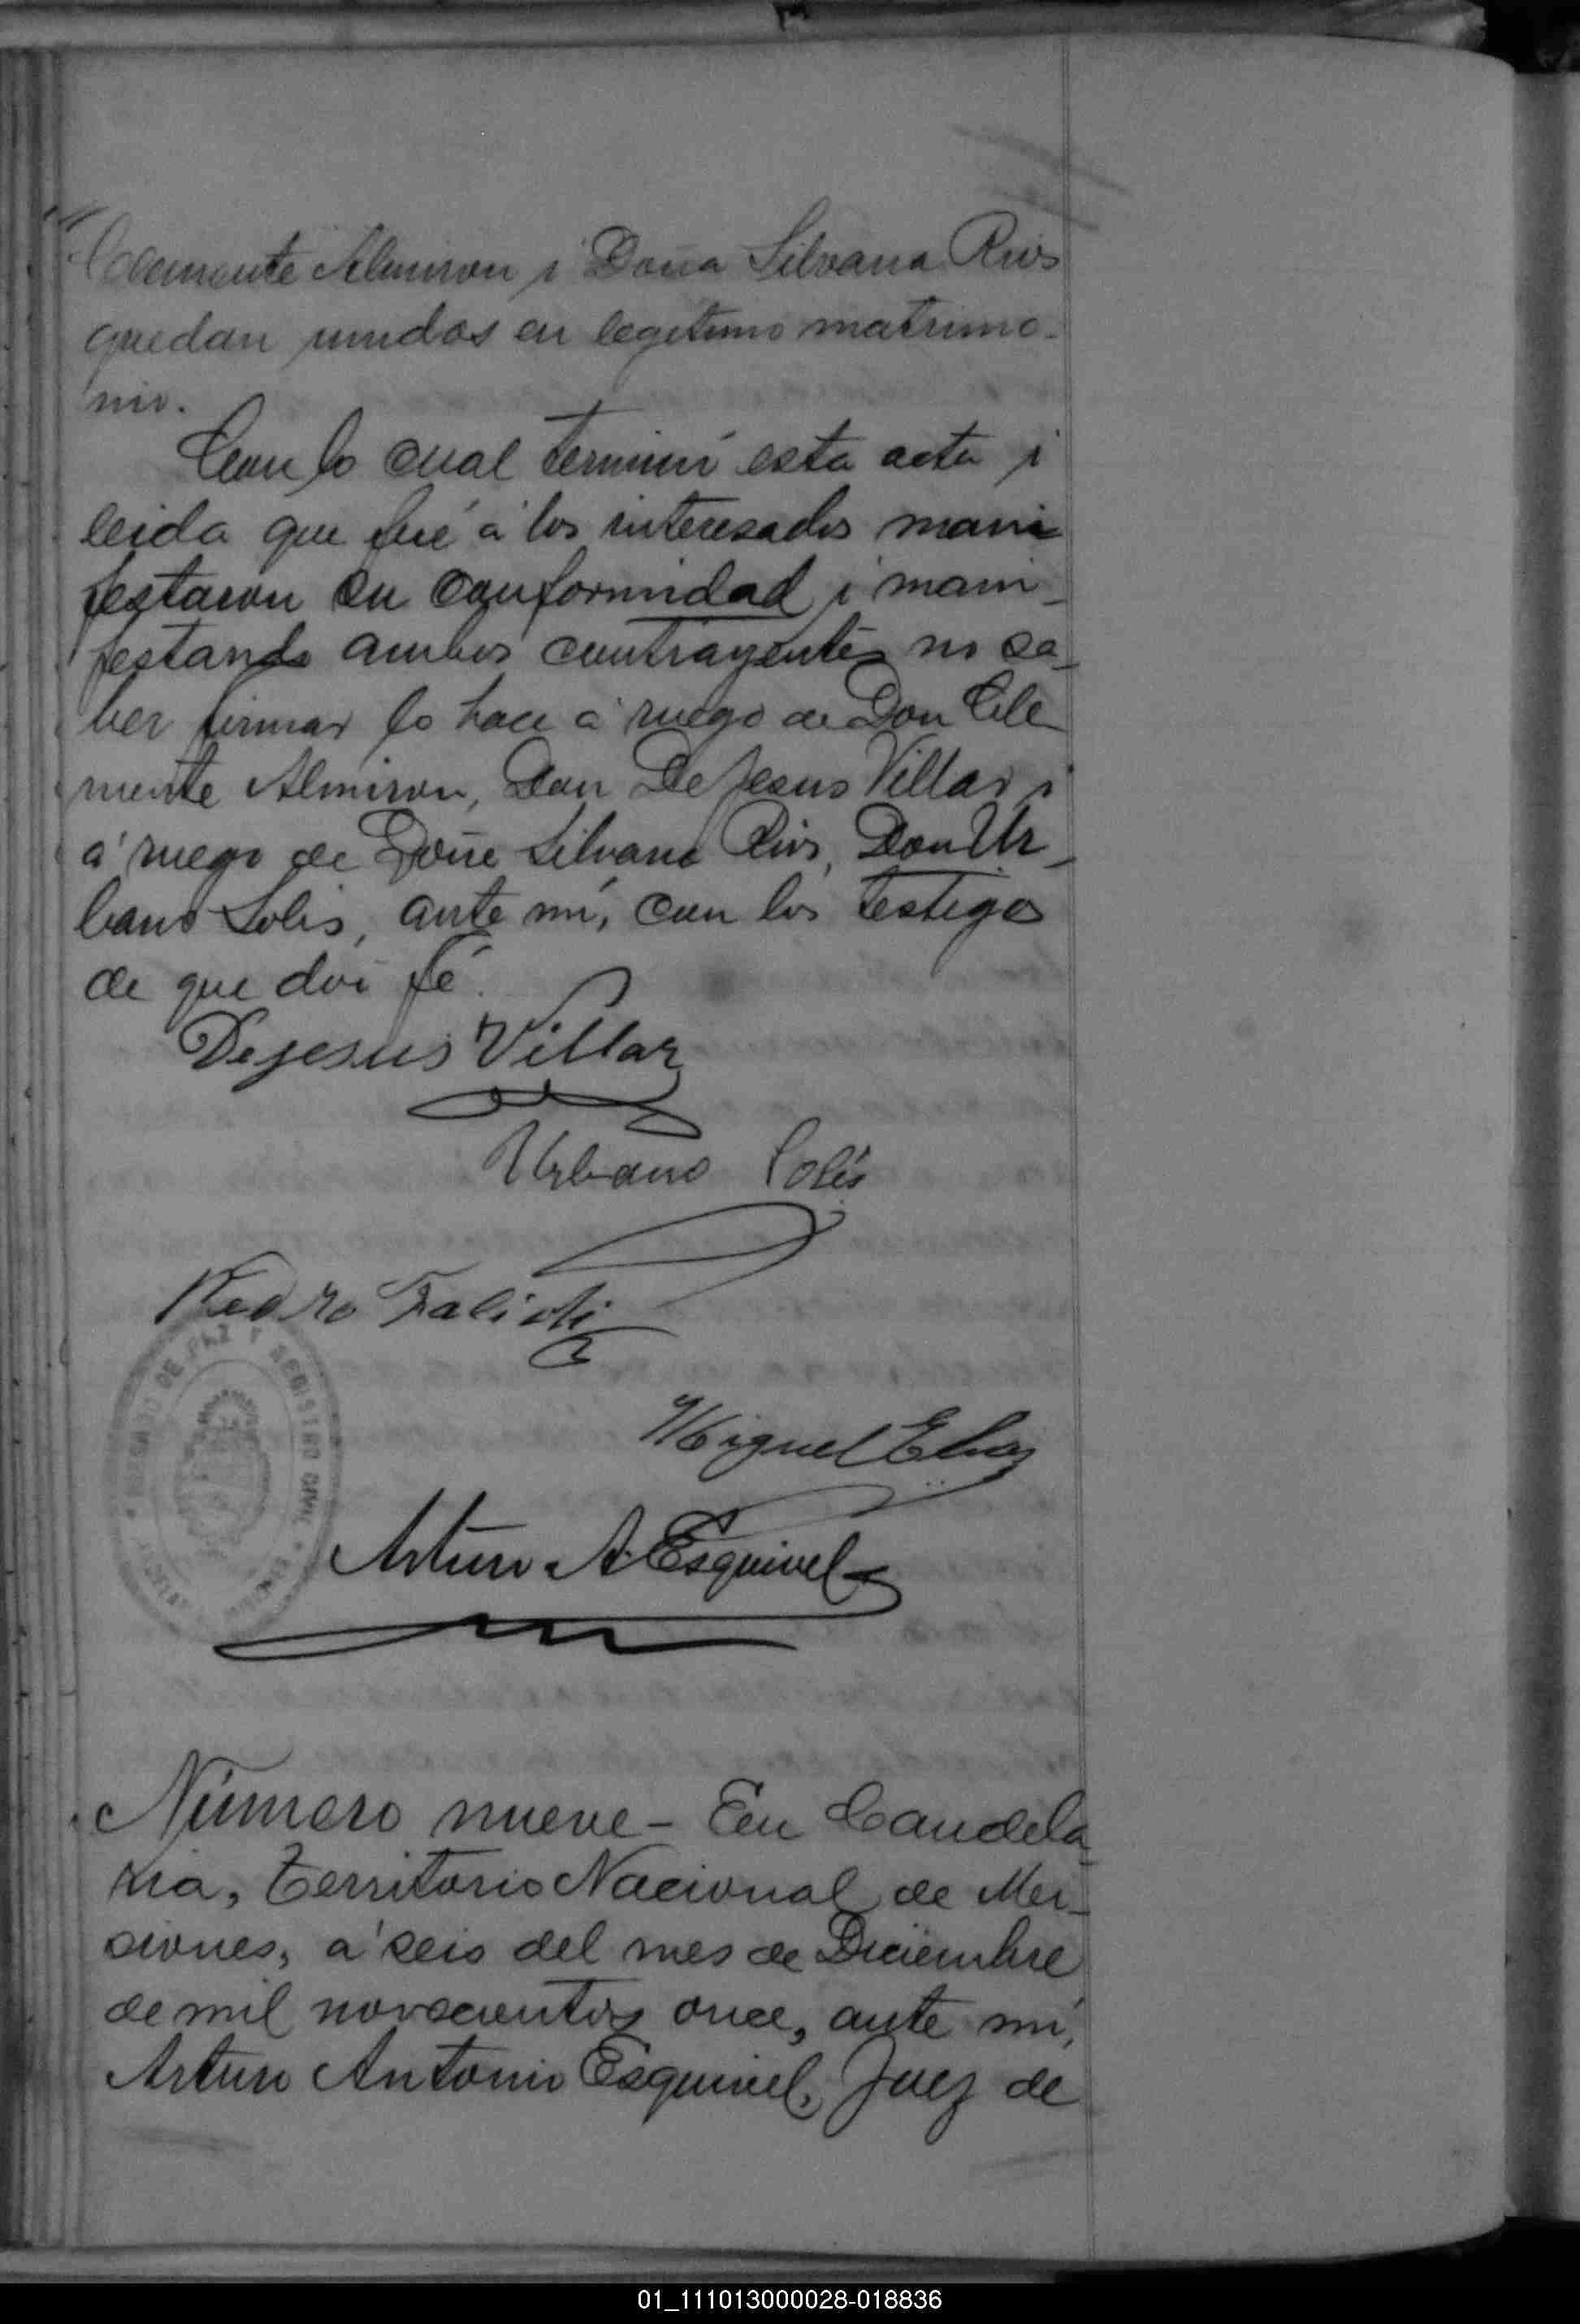 Clemente Almiron i Doña Silvana Rios
quedan unidos en legitimo matrimo-
nio.
Con lo cual terminó esta acta i
leida que fué á los interesados mani
festaron su conformidad i mani-
festando ambos contrayentes no sa-
ber firmar lo hace á ruego de Don Cle
mente Almiron, Don De Jesus Villar i
á ruego de Doña Silvana Rios, Don Ur-
bano Solis, ante mí, con los testigos
de que doi fé.
Dejesus Villar
Urbano Solis
Pedro
JUZGADO DE PAZ Y REGISTRO CIVIL
Miguel Elias
Arturo A. Esquivel
Número nueve - En Candela-
ria, Territorio Nacional de Mi-
siones, á seis del mes de Diciembre
de mil novecientos once, ante mí,
Arturo Antonio Esquivel, Juez de
01_111013000028-018836